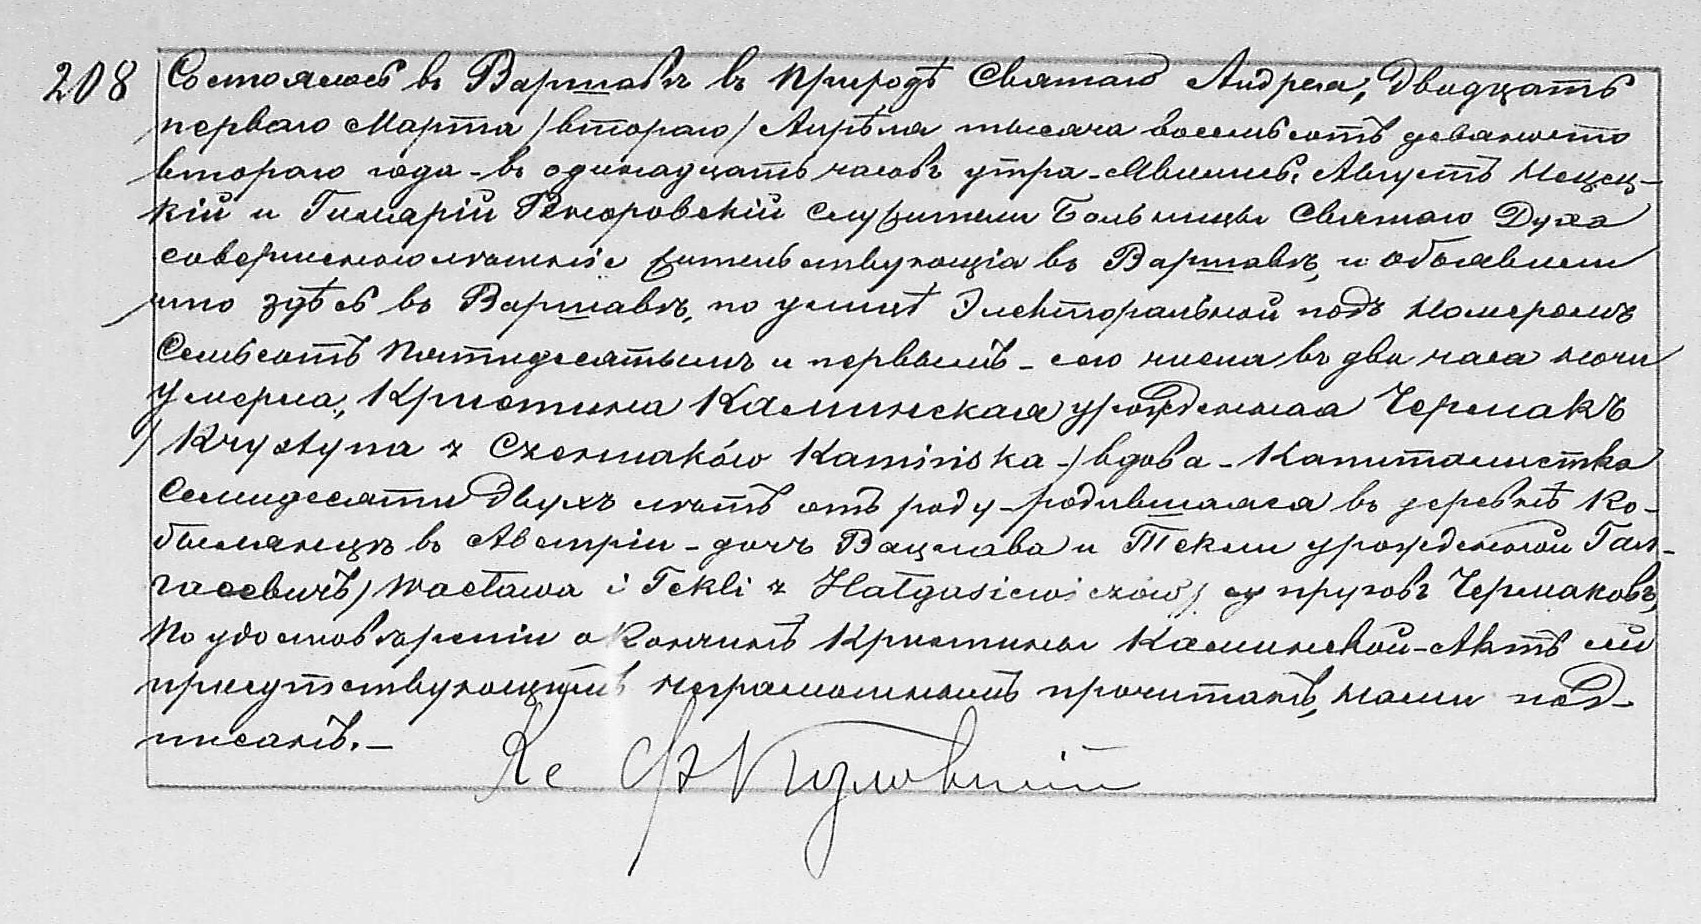 208 Состоялось въ Варшавѣ въ Приходѣ Святаго Андрея, Двадцать
перваго Марта /втораго/ Апрѣля тысяча восемьсотъ девяносто
втораго года - въ одинадцать часовъ утра - Явились, Августъ
кій и Гиларій служители Больницы Святаго Духа
совершеннолѣтніе жительствующіа въ Варшавѣ, и объявили
что здѣсь въ Варшавѣ, по улицѣ Электоральной подъ номеромъ
Семьсотъ Пятидесятымъ и первымъ - сего числа въ два часа ночи
умерла, Кристина Каминская урожденная Чермакъ
/Krystyna z Czermaków Kamińska -/ вдова - Капиталистка
Семидесяти Двухъ лѣтъ отъ роду - родившаяся въ деревнѣ Ко-
былянцѣ въ Австріи - дочь Вацлава и Текли урожденной Гал-
гасевичъ/ Wacława i Tekli z Hałgasiewiczów/ супруговъ Чермаковъ,
По удостовѣреніи о Кончинѣ Кристины Каминской - Актъ сей
присутствующимъ неграмотнымъ прочитанъ, нами под-
писанъ. -